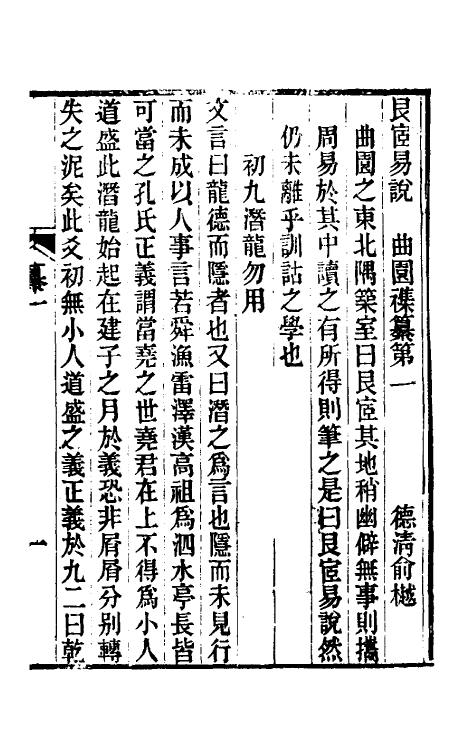 艮宧易說　曲園襍纂第一　德清俞樾
曲園之東北隅築室曰艮宧其地稍幽僻無事則攜
周易於其中讀之有所得則筆之是曰艮宧易說然
仍未離乎訓詁之學也
初九潛龍勿用
文言曰龍德而隱者也又曰潛之爲言也隱而未見行
而未成以人事言若舜漁雷澤漢高祖爲泗水亭長皆
可當之孔氏正義謂當堯之世堯君在上不得爲小人
道盛此潛龍始起在建子之月於義恐非屑屑分别轉
失之泥矣此爻初無小人道盛之義正義於九二曰乾
纂一　一